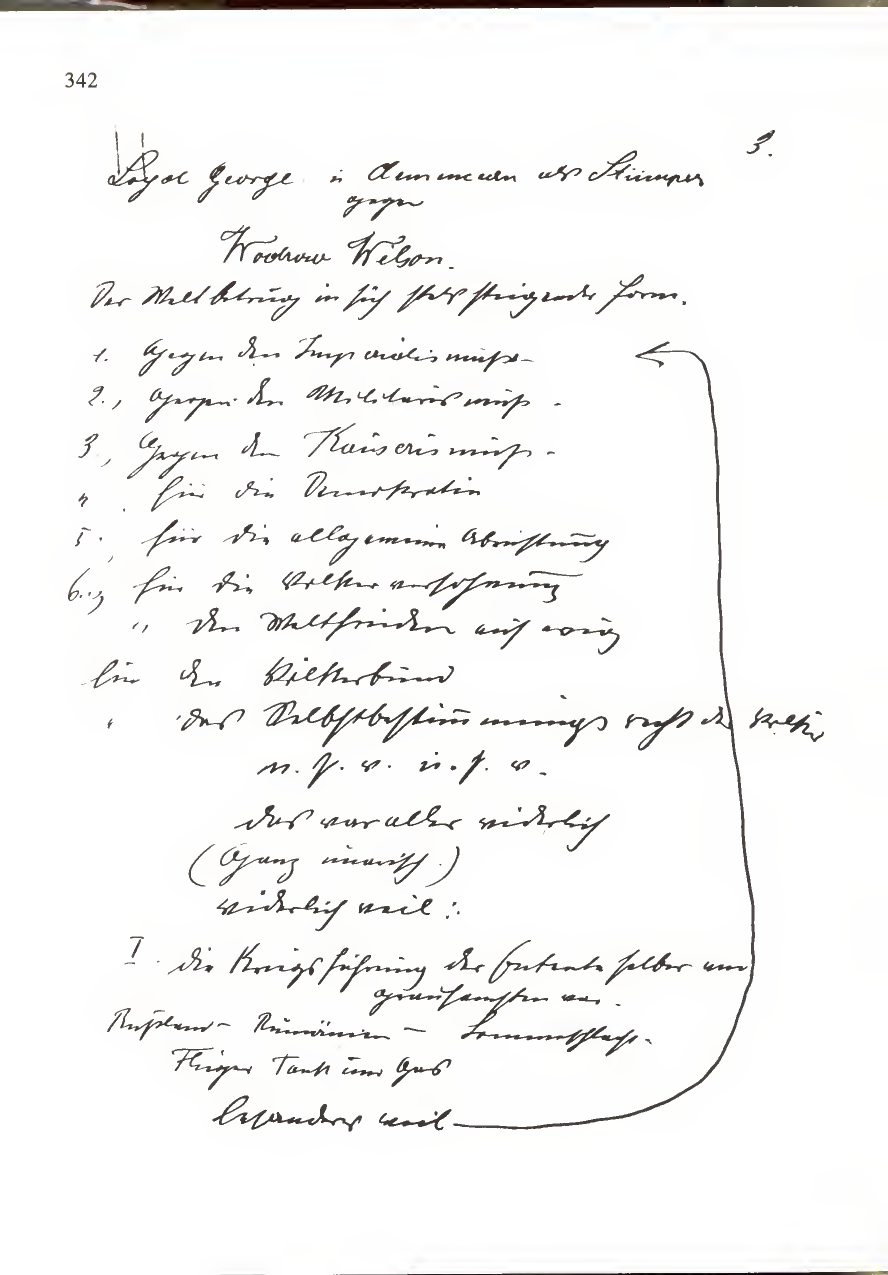 342
3.
Loyd George u Clemenceau als Stümper
gegen
Wodrow Wilson.
Der Weltbetrug in sich stets steigender Form.
1. Gegen den Imperialismuß-
2., Gegen den Militarismuß -
3, Gegen den Kaiserismuß -
4. für die Demokratie
5., für die allgemeine Abrüstung
6.., für die Völkerversöhnung
" den Weltfrieden auf ewig
für den Völkerbund
" das Selbstbestimmungsrecht der Völker
u. s. w. u. s. w.
das war alles widerlich
(Ganz unarisch.)
widerlich weil:
I. die Kriegsführung der Entente selber am
grausamsten war.
Rußland - Rumänien - Sommeschlacht.
Flieger Tank und Gas
besonders weil